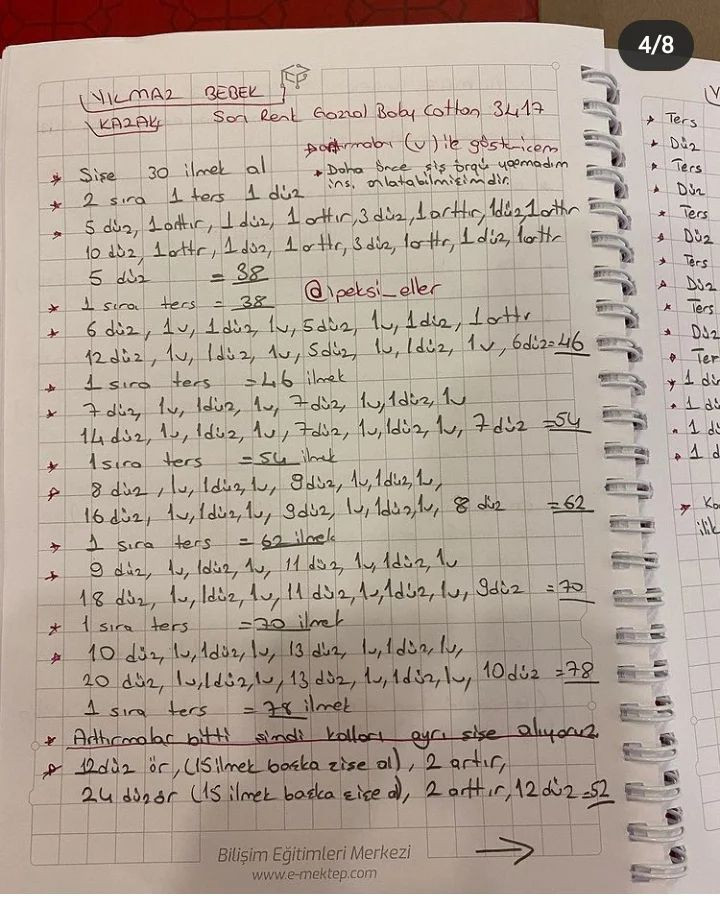 4/8
YILMAZ BEBEK
KAZAK Son Renk Gazzal Baby Cotton 3417
Artırmaları (v) ile göstericem
* Şişe 30 ilmek al
* Daha önce şiş örgü yapmadım
ins. anlatabilmişimdir.
* 2 sıra 1 ters 1 düz
* 5 düz, 1 arttır, 1 düz, 1 arttır, 3 düz, 1 arttır, 1 düz, 1 arttr
10 düz, 1 arttr, 1 düz, 1 arttr, 3 düz, 1 arttr, 1 düz, 1 arttr
5 düz = 38
* 1 sıra ters = 38
@ipeksi_eller
* 6 düz, 1v, 1 düz, 1v, 5 düz, 1v, 1 düz, 1 arttr
12 düz, 1v, 1düz, 1v, 5düz, 1v, 1düz, 1v, 6düz=46
* 1 sıra ters =46 ilmek
* 7 düz, 1v, 1düz, 1v, 7 düz, 1v, 1düz, 1v
14 düz, 1v, 1düz, 1v, 7düz, 1v, 1düz, 1v, 7 düz =54
* 1 sıra ters =54 ilmek
* 8 düz, 1v, 1düz, 1v, 9düz, 1v, 1düz, 1v,
16 düz, 1v, 1düz, 1v, 9düz, 1v, 1düz, 1v, 8 düz =62
* 1 sıra ters = 62 ilmek
* 9 düz, 1v, 1düz, 1v, 11 düz, 1v, 1düz, 1v
18 düz, 1v, 1düz, 1v, 11 düz, 1v, 1düz, 1v, 9düz =70
* 1 sıra ters =70 ilmek
* 10 düz, 1v, 1düz, 1v, 13 düz, 1v, 1düz, 1v,
20 düz, 1v, 1düz, 1v, 13 düz, 1v, 1düz, 1v, 10 düz =78
1 sıra ters = 78 ilmek
* Arttırmalar bitti şindi kolları ayrı şişe alıyoruz
* 12düz ör, (15 ilmek başka şişe al), 2 artır,
24 düz ör (15 ilmek başka şişe al), 2 arttır, 12 düz =52
Bilişim Eğitimleri Merkezi
www.e-mektep.com
* Ters
* Düz
* Ters
* Düz
* Ters
* Düz
* Ters
* Düz
* Ters
* Düz
* Ter
* 1 dü
* 1 dü
* 1 dü
* 1 d
* Ko
ilik